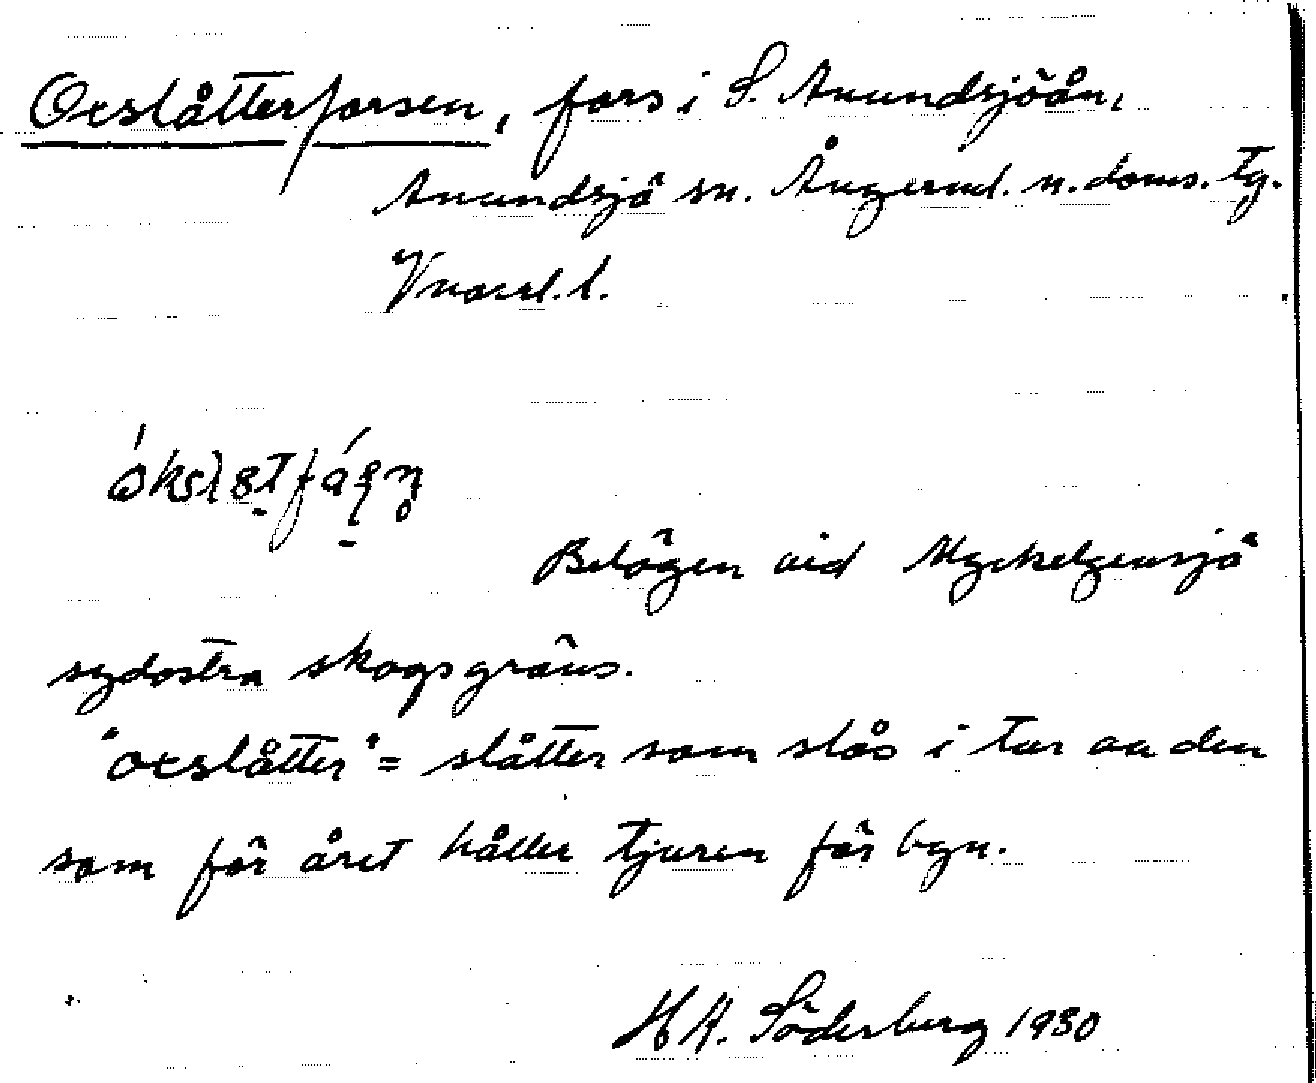 Oxslåtterforsen, fors i S. Anundsjöån,
Anundsjö sn. Ångerml. n. doms. tg.
Vnorrl. l.
Belägen vid Myckelgensjö
sydöstra skogsgräns.
"oxslåtter" = slåtter som slås i tur av den
som för året håller tjuren för byn.
H A. Söderberg 1930